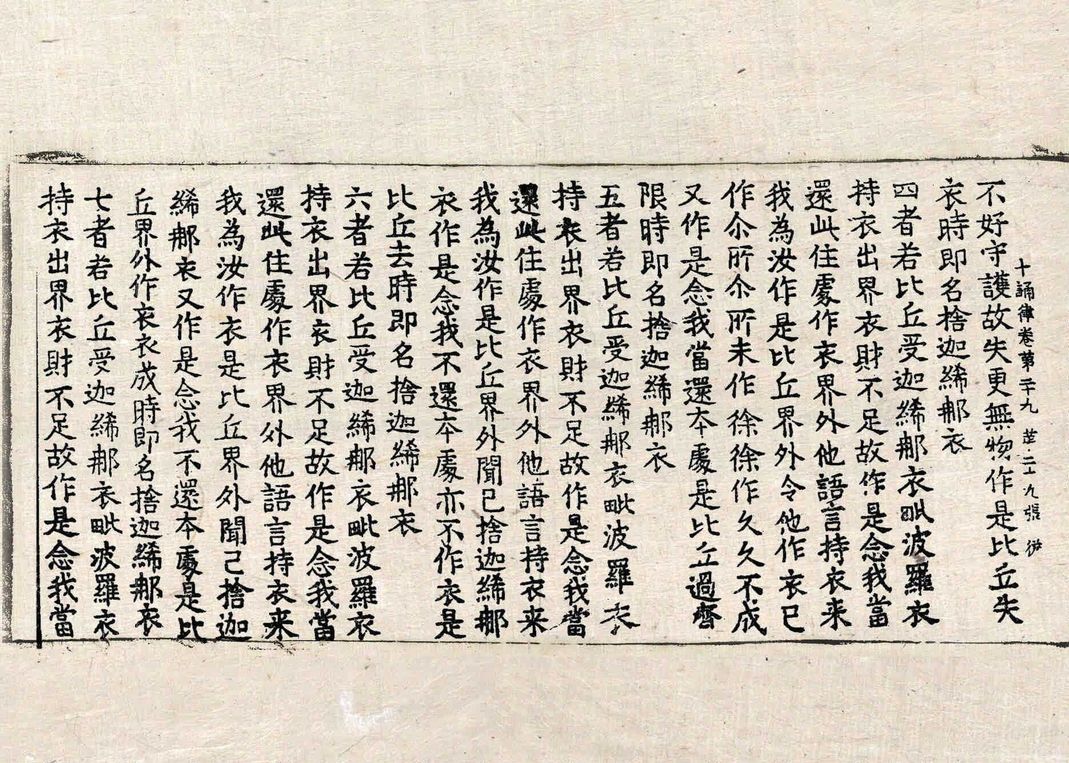 十誦律卷第二十九 張
不好守護故失更無物作是比丘失
衣時即名捨迦絺那衣
四者若比丘受迦絺那衣毗波羅衣
持衣出界衣財不足故作是念我當
還此住處作衣界外他語言持衣来
我為汝作是比丘界外令他作衣已
作尒所尒所未作徐徐作久久不成
又作是念我當還本處是比丘過齊
限時即名捨迦絺那衣
五者若比丘受迦絺那衣毗波羅衣
持衣出界衣財不足故作是念我當
還此住處作衣界外他語言持衣来
我為汝作是比丘界外聞已捨迦絺那
衣作是念我不還本處亦不作衣是
比丘去時即名捨迦絺那衣
六者若比丘受迦絺那衣毗波羅衣
持衣出界衣財不足故作是念我當
還此住處作衣界外他語言持衣来
我為汝作衣是比丘界外聞已捨迦
絺那衣又作是念我不還本處是比
丘界外作衣衣成時即名捨迦絺那衣
七者若比丘受迦絺那衣毗波羅衣
持衣出界衣財不足故作是念我當